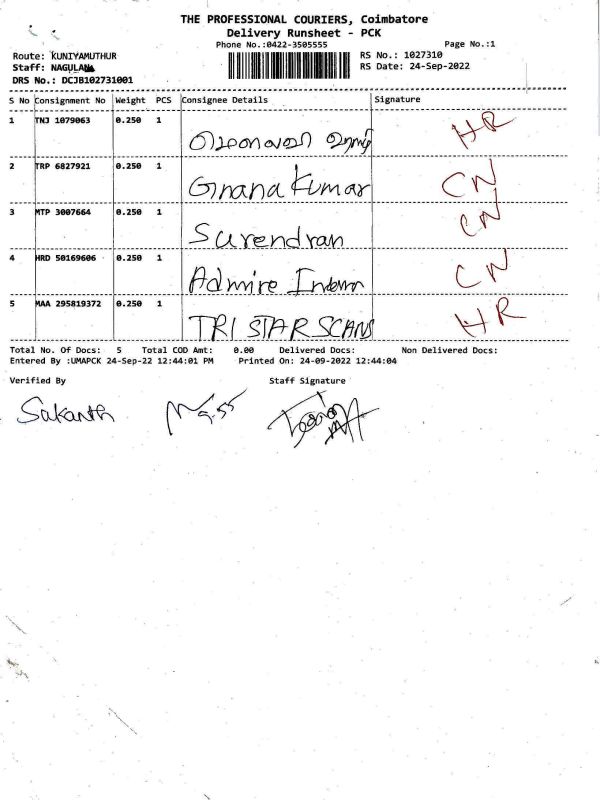 THE PROFESSIONAL COURIERS, Coimbatore
Delivery Runsheet - PCK
Phone No.:0422-3505555
Page No.:1
Route: KUNIYAMUTHUR
RS No.: 1027310
Staff: NAGULAN
RS Date: 24-Sep-2022
DRS No.: DCJB102731001
S No Consignment No Weight PCS Consignee Details Signature
1 TNJ 1079063 0.250 1 HR
2 TRP 6827921 0.250 1 Gnana Kumar CN
3 MTP 3007664 0.250 1 Surendran CN
4 HRD 50169606 0.250 1 Admire CN
5 MAA 295819372 0.250 1 TRI STAR SCANS HR
Total No. Of Docs: 5 Total COD Amt: 0.00 Delivered Docs: Non Delivered Docs:
Entered By :UMAPCK 24-Sep-22 12:44:01 PM Printed On: 24-09-2022 12:44:04
Verified By Staff Signature
Sakanth 9.55